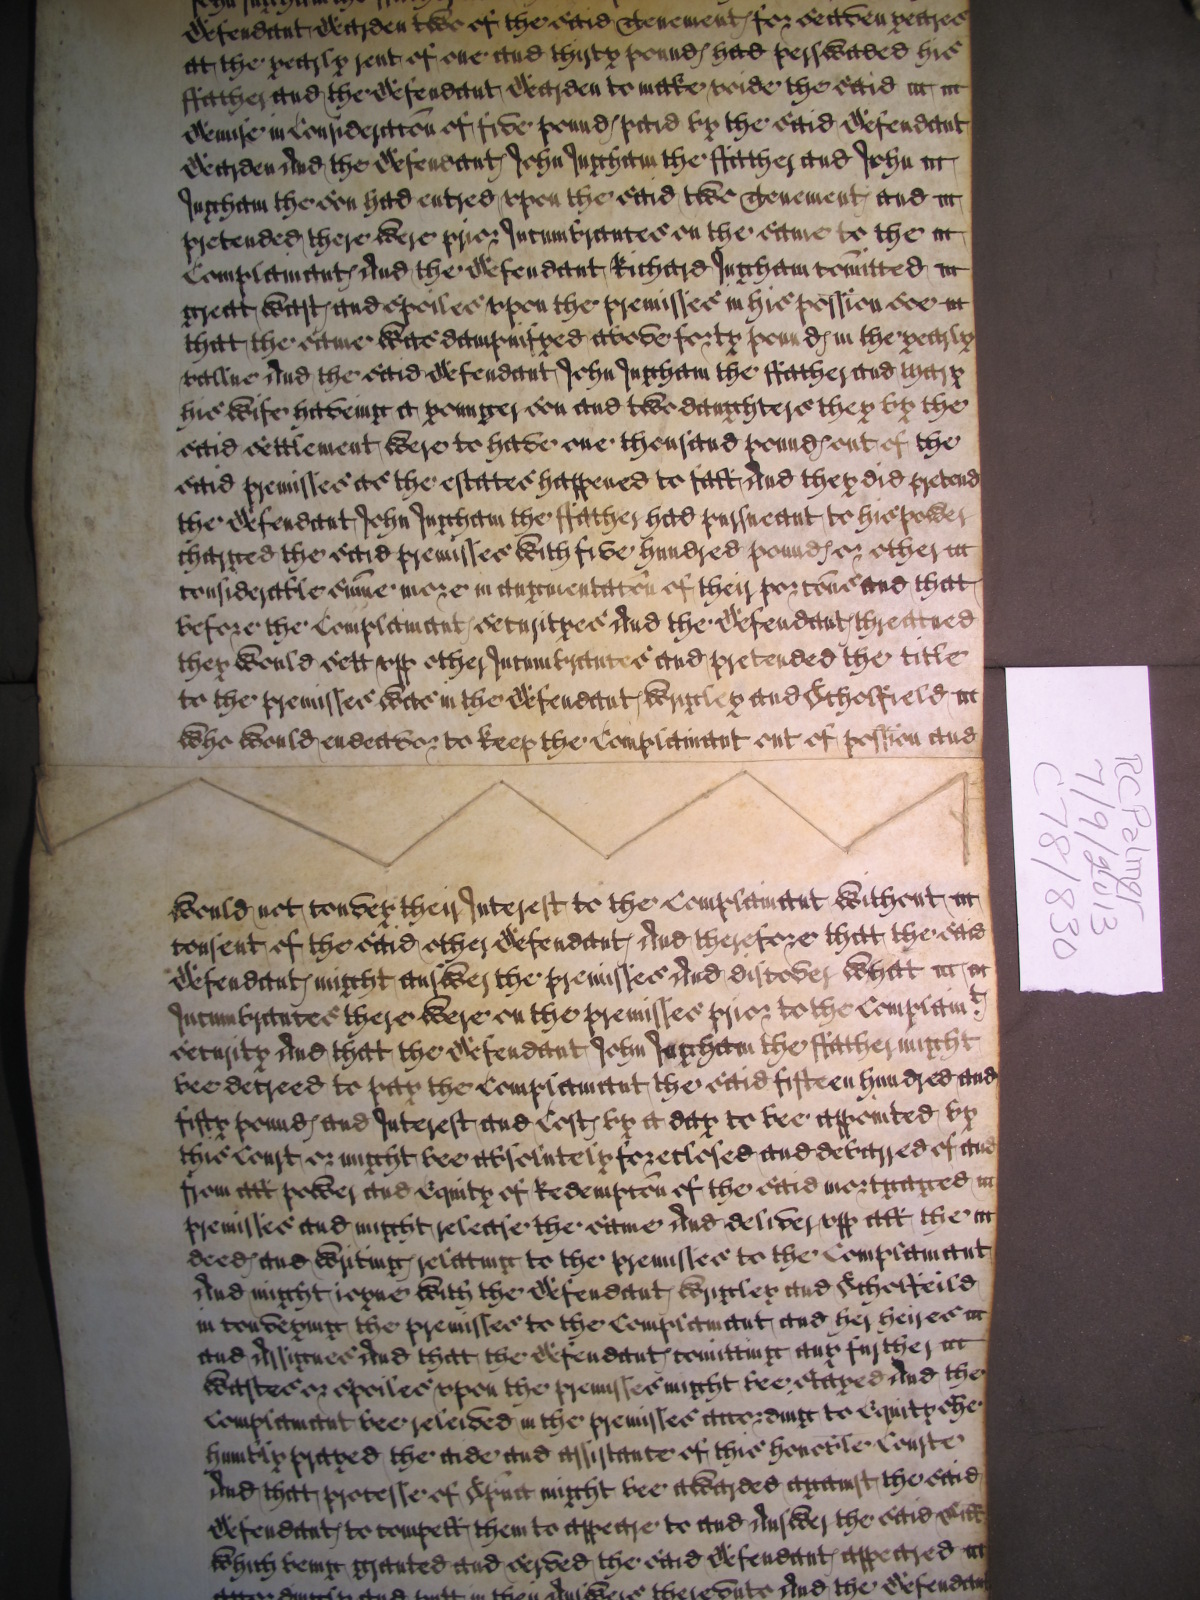 defendant Dearden two of the said Tenements for seaven yeares
at the yearly rent of one and thirty pounds had perswaded his
ffather and the defendant Dearden to make voide the said
demise in Consideracōn of five pounds paid by the said defendant
Dearden And the defendants John Ingham the ffather and John
Ingham the son had entred upon the said two Tenements and
pretended there were prior Incumbrances on the same to the
Complainants And the defendant Richard Ingham comitted
great wast and spoiles upon the premisses in his possion soe
that the same was dampnifyed above forty pounds in the yearly
vallue And the said defendant John Ingham the ffather and Mary
his wife haveing a younger son and two daughters they by the
said settlement were to have one thousand pounds out of the
said premisses as the estates happened to fall And they did pretend
the defendant John Ingham the ffather had pursueant to his power
charged the said premisses with five hundred pounds or other
considerable sūme more in augmentacōn of their porcōns and that
before the Complainants securityes And the defendants threatned
they would sett upp other Incumbrances and pretended the title
to the premisses was in the defendants Wrigley and Scholfield
who would endeavor to keep the Complainant out of possion and
would not convey their Interest to the Complainant without
consent of the said other defendants And therefore that the said
defendants might answer the premisses And discover what
Incumbrances there were on the premisses prior to the Complaints
security And that the defendant John Ingham the ffather might
bee decreed to pay the Complainant the said fifteen hundred and
fifty pounds and Interest and Costs by a day to bee appointed by
this Court or might bee absolutely foreclosed and debarred of and
from all power and Equity of Redempcōn of the said mortgaged
premisses and might release the same And deliver upp all the
deeds and writings relating to the premisses to the Complainant
And might ioyne with the defendants Wrigley and Scholfeild
in conveying the premisses to the Complainant and her heires
and Assignes And that the defendants comitting any further
wastes or spoiles upon the premisses might bee stayed And the
Complainant bee releived in the premisses according to Equity she
humbly prayed the aide and assistance of this honoble Courte
And that processe of Spēna might bee awarded against the said
defendants to compell them to appeare to and Answer the said Bill
which being granted and served the said defendants appeared
accordingly and putt in their Answers thereunto And the defendant
RCPalmer
7/9/2013
C78/830